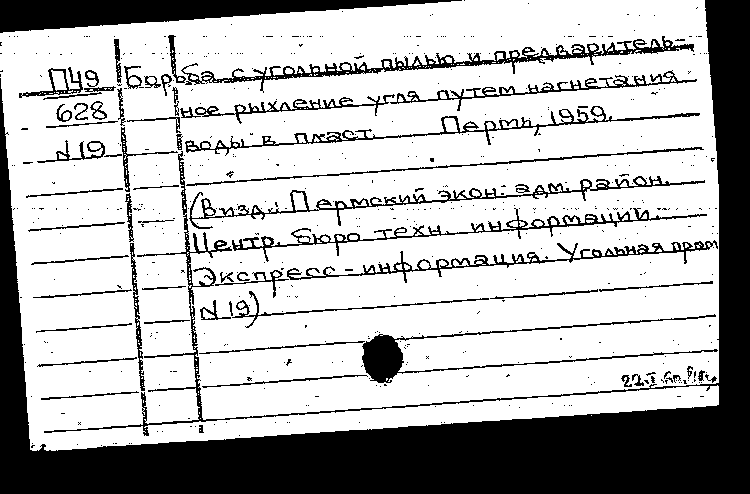 П49 Борьба с угольной пылью и предваритель-
628 ное рыхление угля путем нагнетания
N19 воды в пласт. Пермь, 1959.
(В изд.: Пермский экон. адм. район.
Центр. бюро техн. информации.
Экспресс-информация. Угольная пром
N 19).
22.I